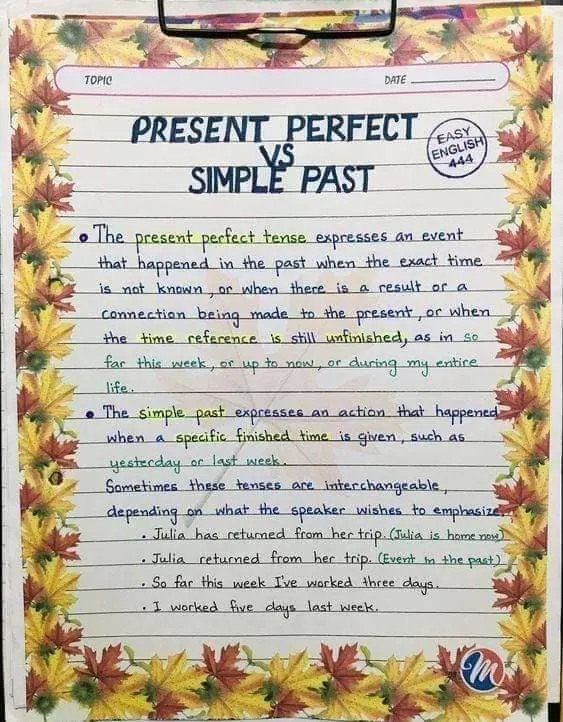 TOPIC DATE
PRESENT PERFECT
VS
SIMPLE PAST
EASY
ENGLISH
444
• The present perfect tense expresses an event
that happened in the past when the exact time
is not known, or when there is a result or a
connection being made to the present, or when
the time reference is still unfinished, as in so
far this week, or up to now, or during my entire
life.
• The simple past expresses an action that happened
when a specific finished time is given, such as
yesterday or last week.
Sometimes these tenses are interchangeable,
depending on what the speaker wishes to emphasize.
• Julia has returned from her trip. (Julia is home now)
• Julia returned from her trip. (Event in the past)
• So far this week I've worked three days.
• I worked five days last week.
M